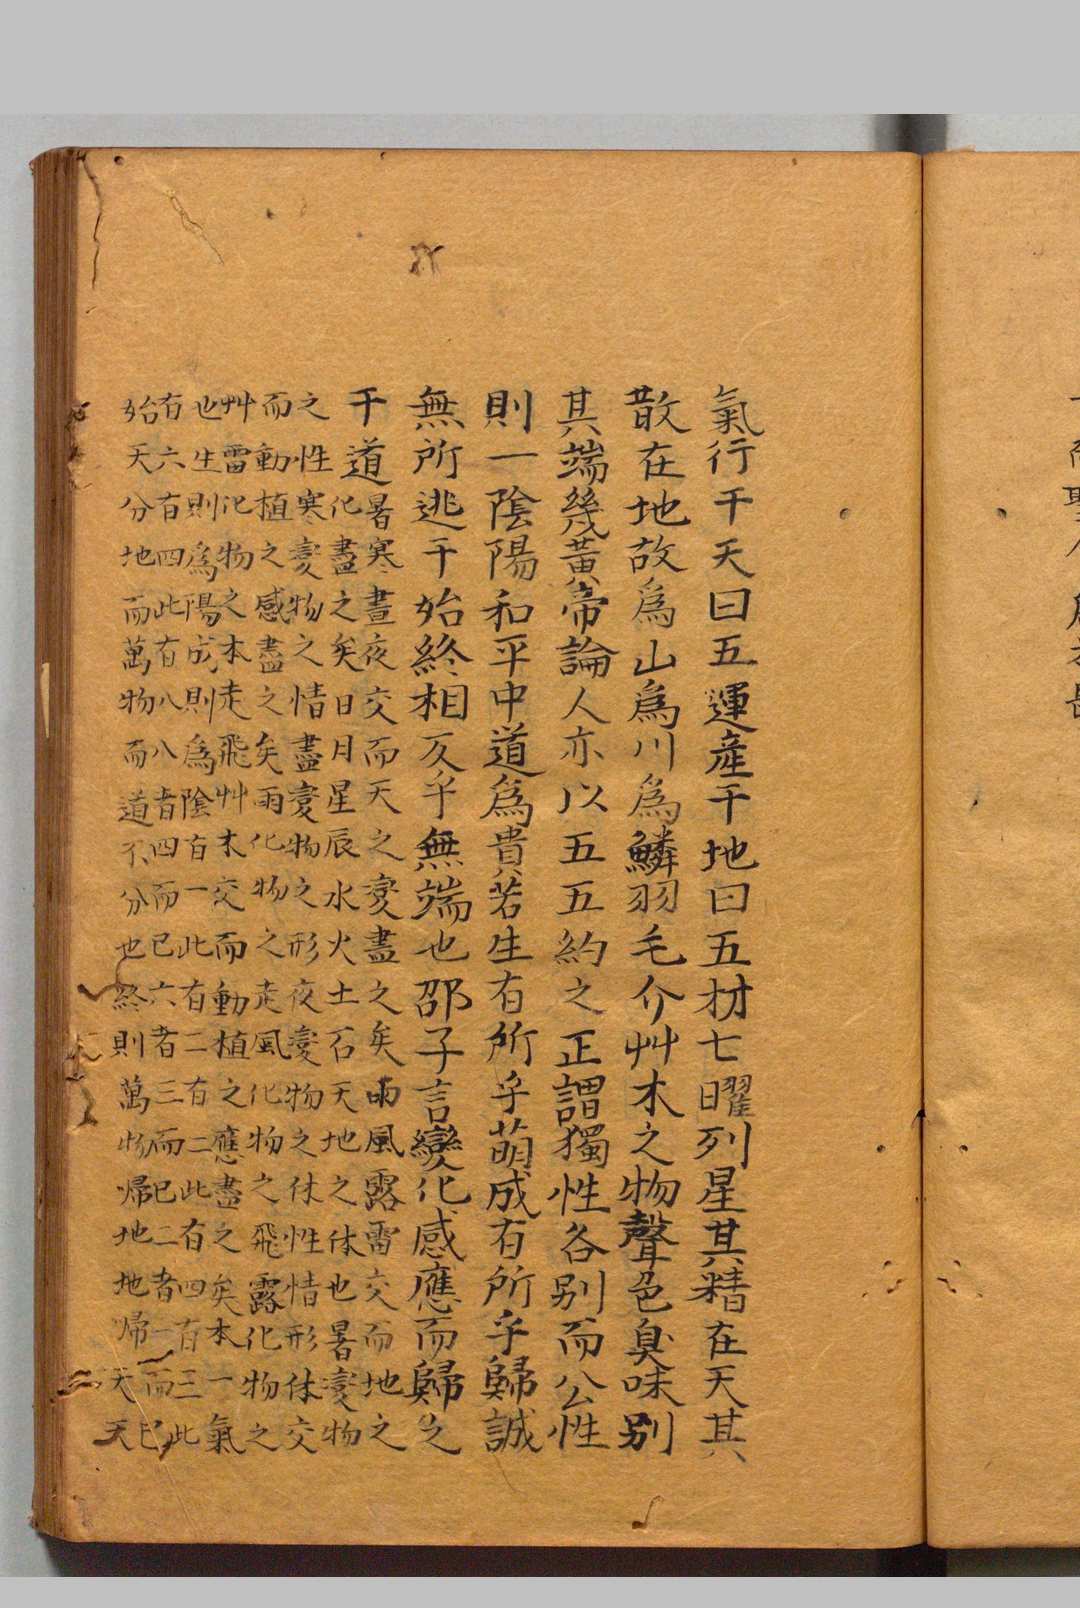 氣行于天曰五運產于地曰五材七曜列星其精在天其
散在地故爲山爲川爲鱗羽毛介艸木之物聲色臭味別
其端幾黃帝論人亦以五五約之正謂獨性各別而公性
則一陰陽和平中道爲貴若生有所乎萌成有所乎歸誠
無所逃于始終相反乎無端也邵子言變化感應而歸之
于道
暑寒晝夜交而天之變盡之矣雨風露雷交而地之
化盡之矣日月星辰水火土石天地之体也暑變物
之性寒變物之情晝變物之形夜變物之体性情形体交
而動植之感盡之矣雨化物之走風化物之飛露化物之
艸雷化物之木走飛艸木交而動植之應盡之矣本一氣
也生則爲陽成則爲陰有一此有二有二此有四有三此
有六有四此有八八者四而已六者三而已二者一而已
始天分地而萬物而道不分也終則萬物歸地地歸天天